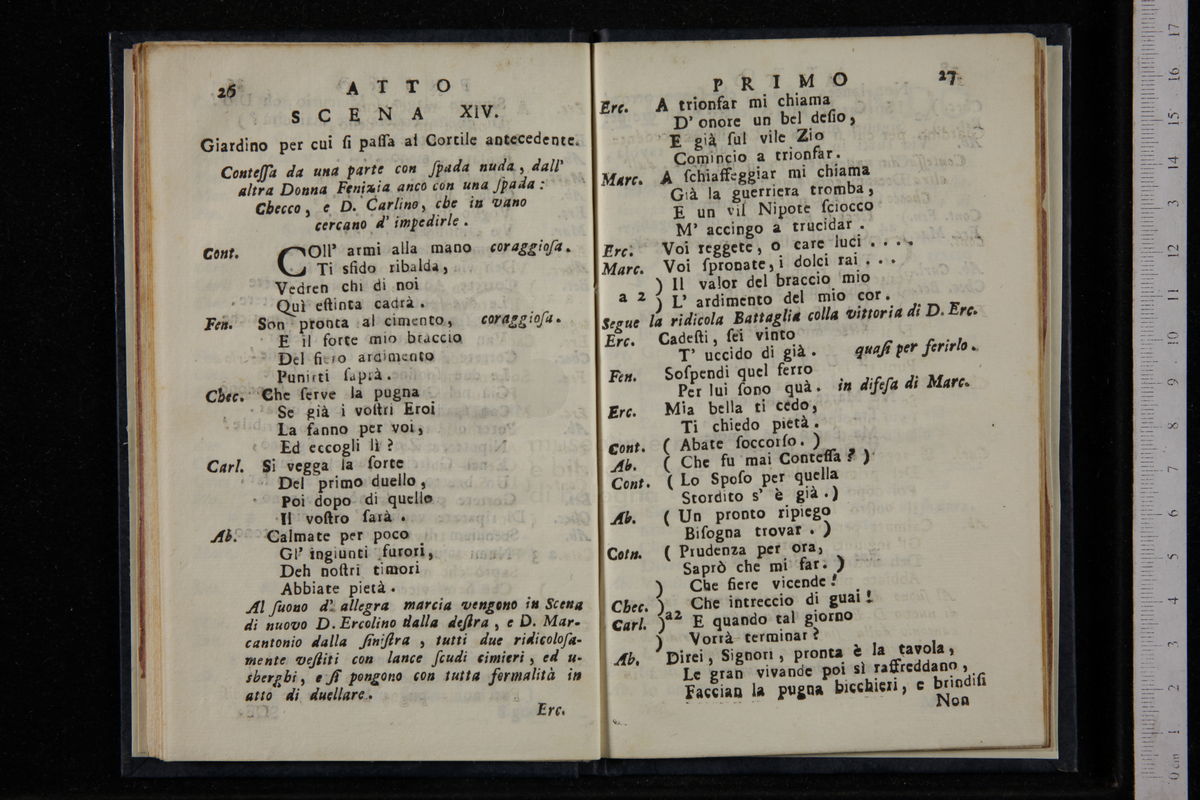 26 ATTO
SCENA XIV.
Giardino per cui ſi paſſa al Cortile antecedente.
Conteſſa da una parte con ſpada nuda, dall'
altra Donna Fenizia anco con una ſpada:
Checco, e D. Carlino, che in vano
cercano d' impedirle.
Cont. COll' armi alla mano coraggioſa.
Ti sfido ribalda,
Vedren chi di noi
Quì eſtinta cadrà.
Fen. Son pronta al cimento, coraggioſa.
E il forte mio braccio
Del fiero ardimento
Punirti ſaprà.
Chec. Che ſerve la pugna
Se già i voſtri Eroi
La fanno per voi,
Ed eccogli lì?
Carl. Si vegga la ſorte
Del primo duello,
Poi dopo di quello
Il voſtro ſarà.
Ab. Calmate per poco
Gl' ingiunti furori,
Deh noſtri timori
Abbiate pietà.
Al ſuono d' allegra marcia vengono in Scena
di nuovo D. Ercolino dalla deſtra, e D. Mar-
cantonio dalla ſiniſtra, tutti due ridicoloſa-
mente veſtiti con lance ſcudi cimieri, ed u-
sberghi, e ſi pongono con tutta formalità in
atto di duellare.
Erc.
PRIMO 27
Erc. A trionfar mi chiama
D' onore un bel deſio,
E già ſul vile Zio
Comincio a trionfar.
Marc. A ſchiaffeggiar mi chiama
Già la guerriera tromba,
E un vil Nipote ſciocco
M' accingo a trucidar.
Erc. Voi reggete, o care luci ....
Marc. Voi ſpronate, i dolci rai ...
) Il valor del braccio mio
a 2 ) L' ardimento del mio cor.
Segue la ridicola Battaglia colla vittoria di D. Erc.
Erc. Cadeſti, ſei vinto
T' uccido di già. quaſi per ferirlo.
Fen. Soſpendi quel ferro
Per lui ſono quà. in difeſa di Marc.
Erc. Mia bella ti cedo,
Ti chiedo pietà.
Cont. (Abate ſoccorſo.)
Ab. (Che fu mai Conteſſa?)
Cont. (Lo Spoſo per quella
Stordito s' è già.)
Ab. (Un pronto ripiego
Biſogna trovar.)
Cotn. (Prudenza per ora,
Saprò che mi far.)
) Che fiere vicende!
Chec. ) Che intreccio di guai!
Carl. )a2 E quando tal giorno
) Vorrà terminar?
Ab. Direi, Signori, pronta è la tavola,
Le gran vivande poi sì raffreddano,
Faccian la pugna bicchieri, e brindiſi
Non